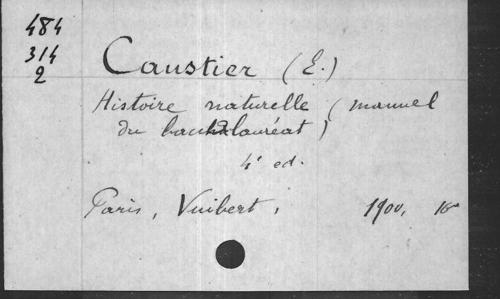 484
314
2
Caustier (E.)
Histoire naturelle (manuel
du baccalauréat)
4e ed.
Paris, Vuibert, 1900, 16°